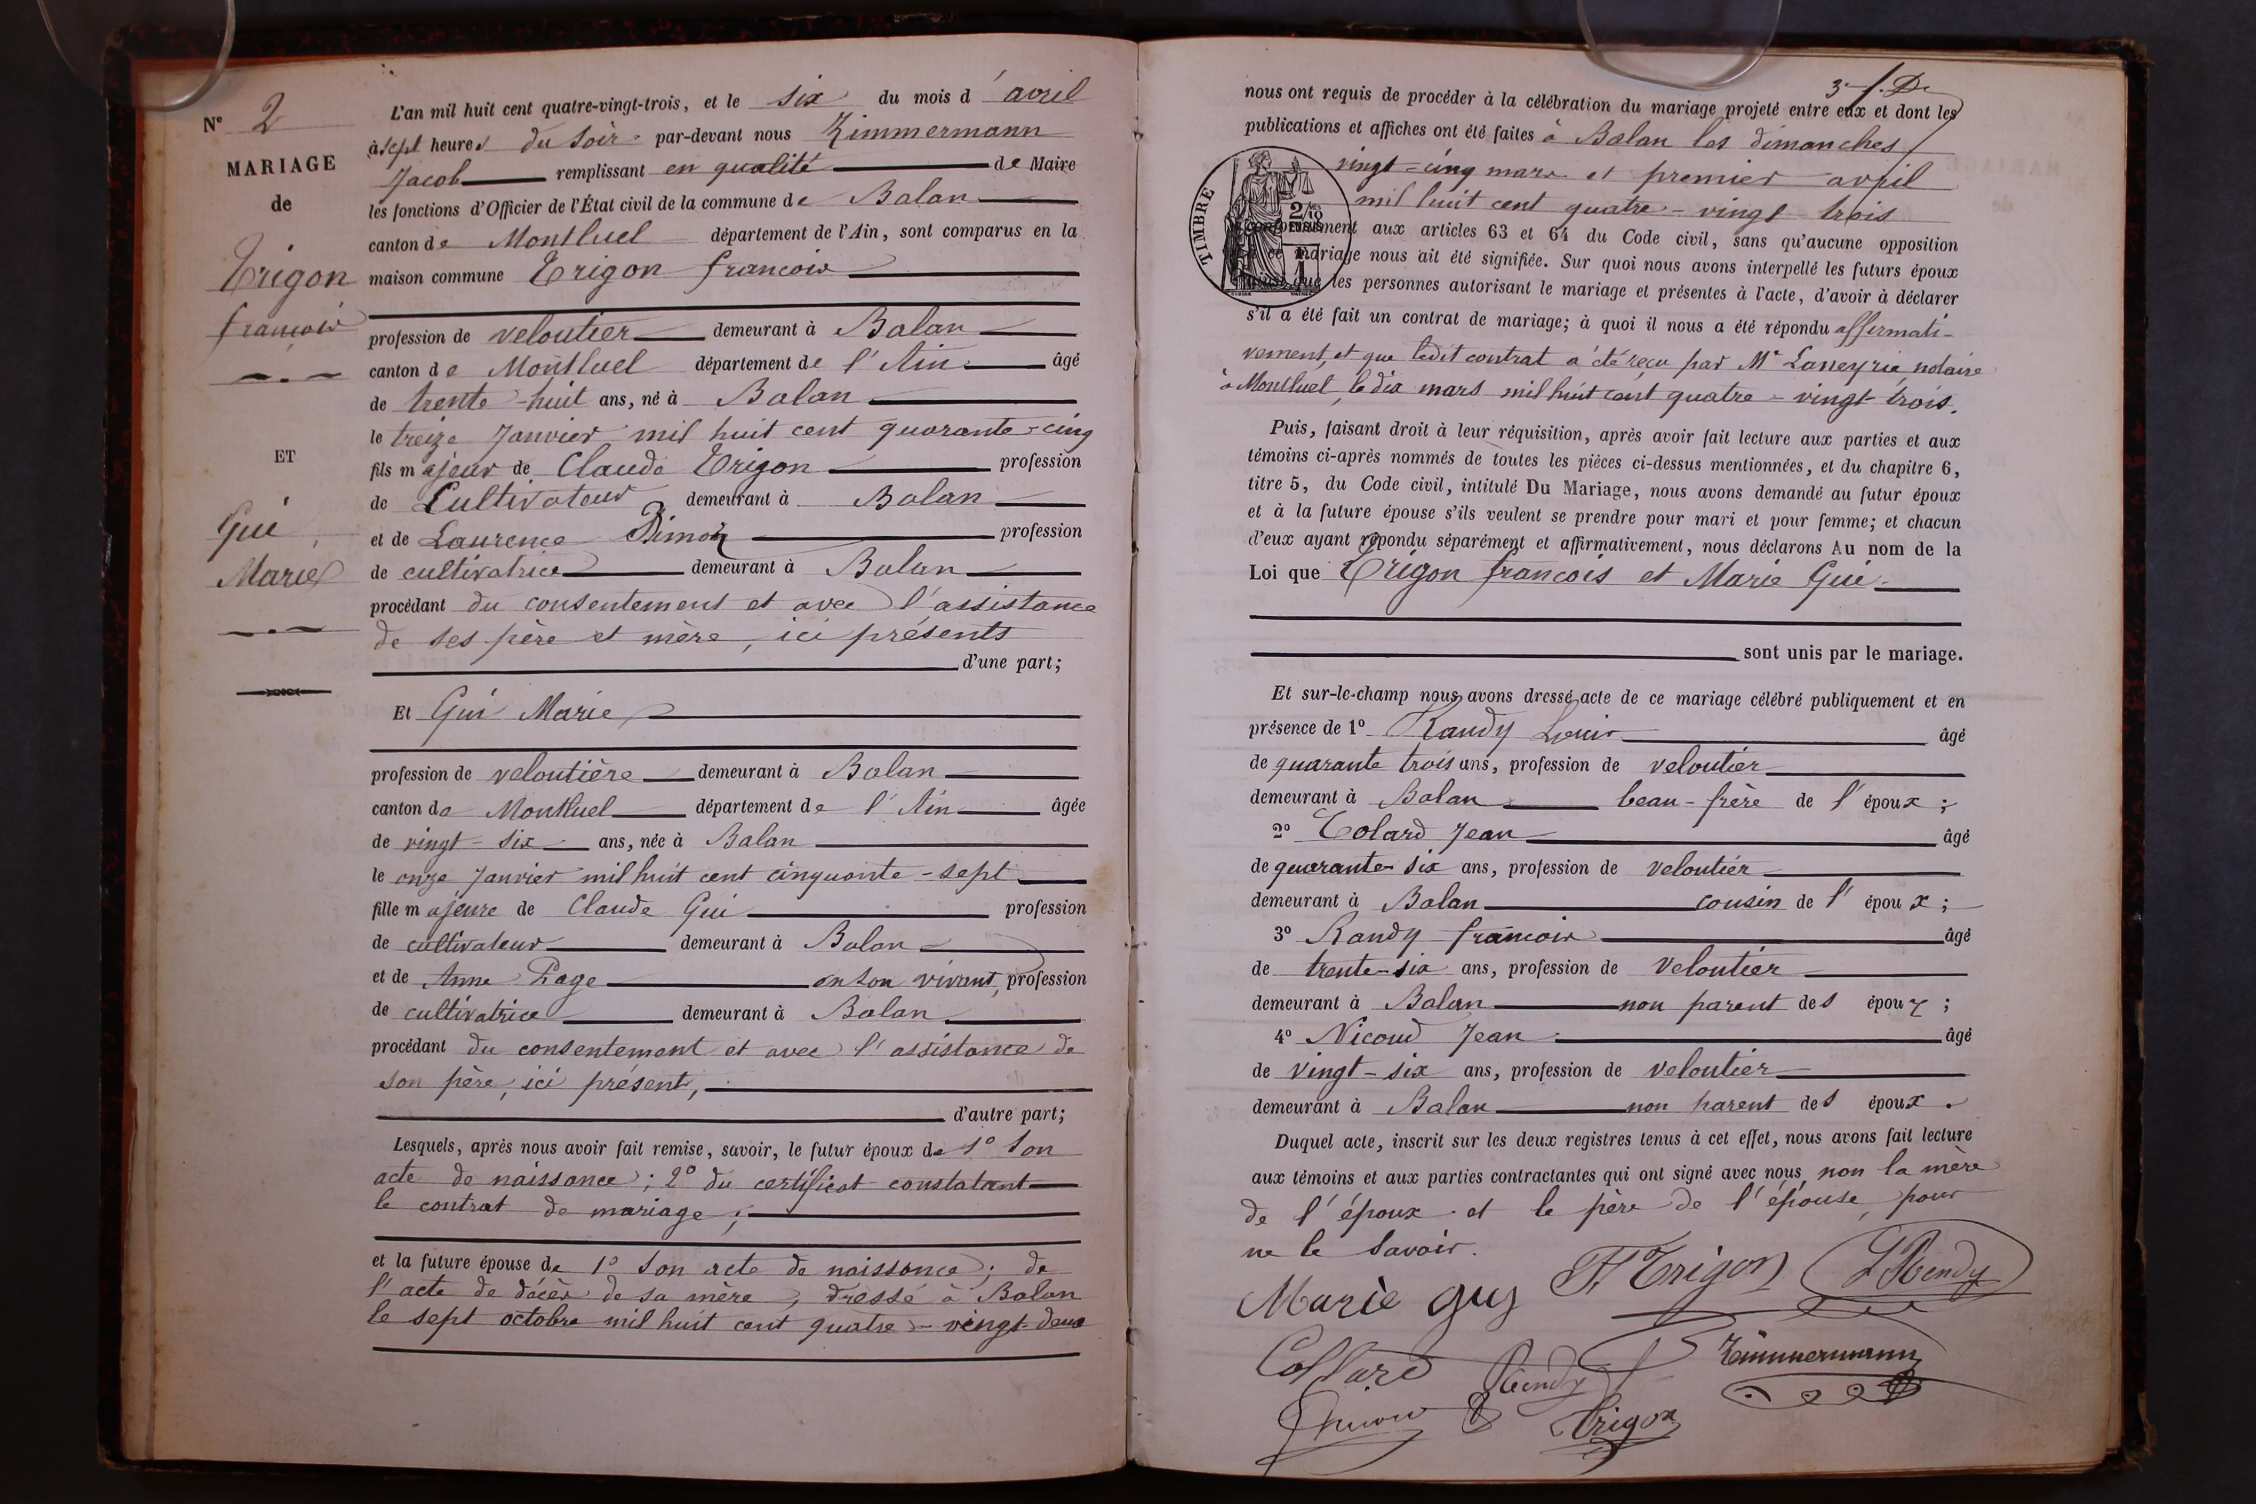 N° 2
MARIAGE
de
Trigon
françois
ET
Gui
Marie
L'an mil huit cent quatre-vingt-trois, et le six du mois d'avril
à sept heures du soir par-devant nous Zimmermann
Jacob remplissant en qualité de Maire
les fonctions d'Officier de l'État civil de la commune de Balan
canton de Montluel département de l'Ain, sont comparus en la
maison commune Trigon françois
profession de veloutier demeurant à Balan
canton de Montluel département de l'Ain âgé
de trente-huit ans, né à Balan
le treize Janvier mil huit cent quarante-cinq
fils majeur de Claude Trigon profession
de Cultivateur demeurant à Balan
et de Laurence profession
de cultivatrice demeurant à Balan
procédant du consentement et avec l'assistance
de ses père et mère, ici présents
d'une part;
Et Gui Marie
profession de veloutière demeurant à Balan
canton de Montluel département de l'Ain âgée
de vingt-six ans, née à Balan
le onze Janvier mil huit cent cinquante-sept
fille majeure de Claude Gui profession
de cultivateur demeurant à Balan
et de Anne Page en son vivant, profession
de cultivatrice demeurant à Balan
procédant du consentement et avec l'assistance de
son père, ici présent,
d'autre part;
Lesquels, après nous avoir fait remise, savoir, le futur époux de 1° Son
acte de naissance; 2° du certificat constatant
le contrat de mariage;
et la future épouse de 1° Son acte de naissance; de
l'acte de décès de sa mère, dressé à Balan
le sept octobre mil huit cent quatre-vingt-deux
3e f. De
nous ont requis de procéder à la célébration du mariage projeté entre eux et dont les
publications et affiches ont été faites à Balan les dimanches
vingt-cinq mars et premier avril
mil huit cent quatre-vingt trois
TIMBRE
2/10 EN SUS
conformément aux articles 63 et 64 du Code civil, sans qu'aucune opposition
ce mariage nous ait été signifiée. Sur quoi nous avons interpellé les futurs époux
ainsi que les personnes autorisant le mariage et présentes à l'acte, d'avoir à déclarer
s'il a été fait un contrat de mariage; à quoi il nous a été répondu affirmati-
vement, et que ledit contrat a été reçu par Me Laneyrie, notaire
à Montluel, le dix mars mil huit cent quatre-vingt-trois.
Puis, faisant droit à leur réquisition, après avoir fait lecture aux parties et aux
témoins ci-après nommés de toutes les pièces ci-dessus mentionnées, et du chapitre 6,
titre 5, du Code civil, intitulé Du Mariage, nous avons demandé au futur époux
et à la future épouse s'ils veulent se prendre pour mari et pour femme; et chacun
d'eux ayant répondu séparément et affirmativement, nous déclarons Au nom de la
Loi que Trigon françois et Marie Gui
sont unis par le mariage.
Et sur-le-champ nous avons dressé acte de ce mariage célébré publiquement et en
présence de 1° Randy Louis âgé
de quarante trois ans, profession de veloutier
demeurant à Balan beau-frère de l'époux;
2° Colard Jean âgé
de quarante-six ans, profession de veloutier
demeurant à Balan cousin de l'époux;
3° Randy françois âgé
de trente-six ans, profession de veloutier
demeurant à Balan non parent des époux;
4° Nicoud Jean âgé
de vingt-six ans, profession de veloutier
demeurant à Balan non parent des époux.
Duquel acte, inscrit sur les deux registres tenus à cet effet, nous avons fait lecture
aux témoins et aux parties contractantes qui ont signé avec nous, non la mère
de l'époux et le père de l'épouse, pour
ne le savoir.
Marie guy F Trigon L Rendy
Collard Rendy Zimmermann
Trigon